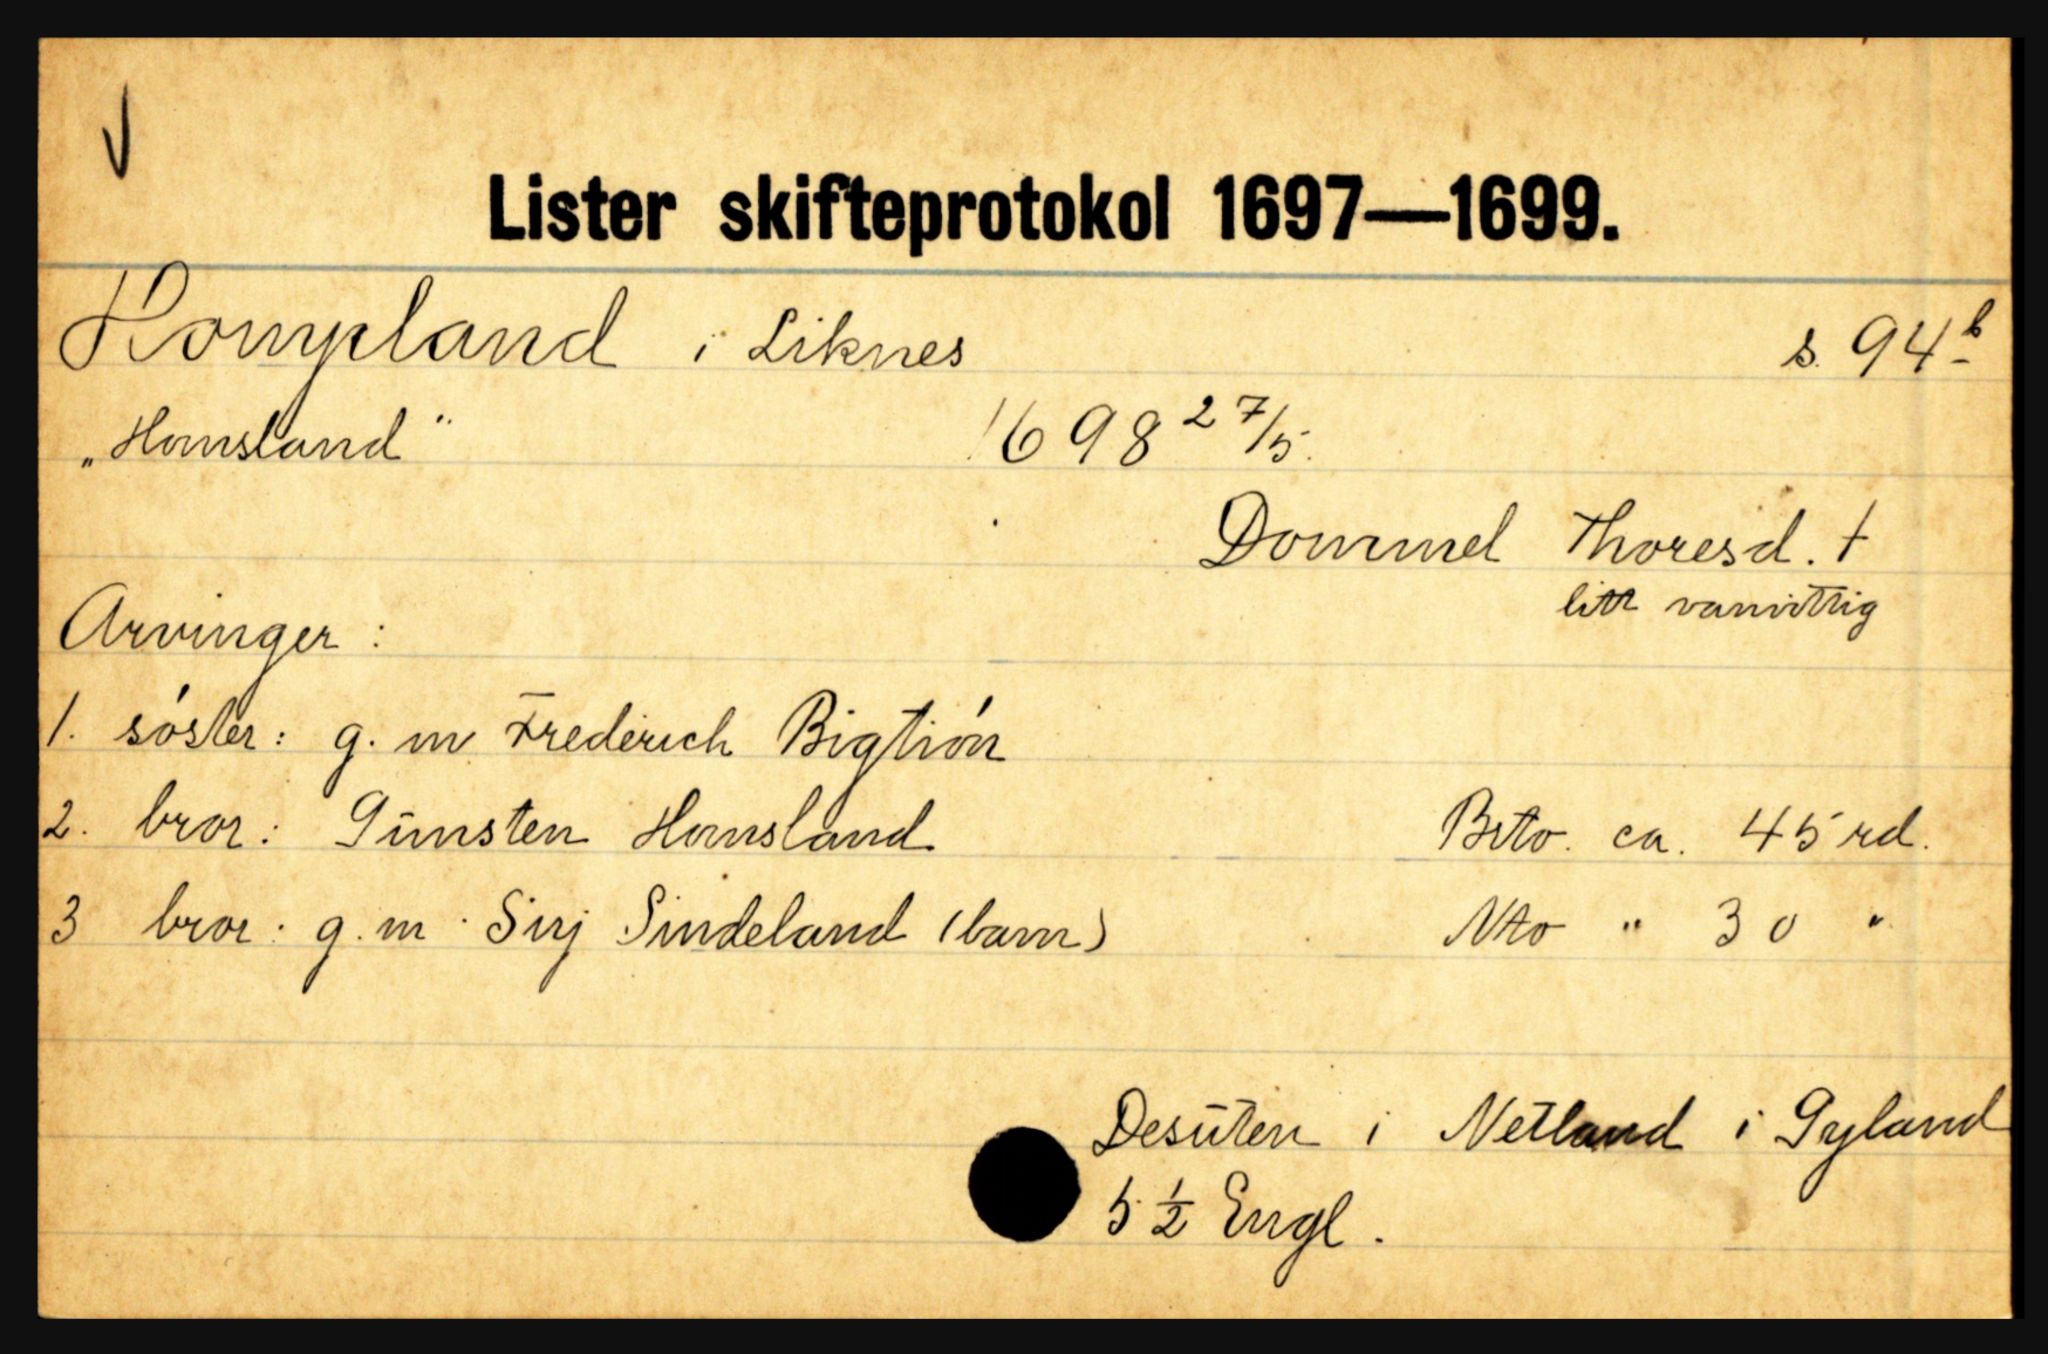 Lister skifteprotokol 1697—1699.
Hompland i Liknes s. 94 b
„Homsland" 1698 27/5.
Dommel Thoresd. †
litt vanvittig
Arvinger:
1. søster: g. m Frederich Bigtión
2. bror: Gunsten Homsland Brto. ca. 45 rd.
3 bror: g. m. Sirj Sindeland (barn) Nto " 30 "
Desuten i Netland i Gyland
5 ½ Engl.